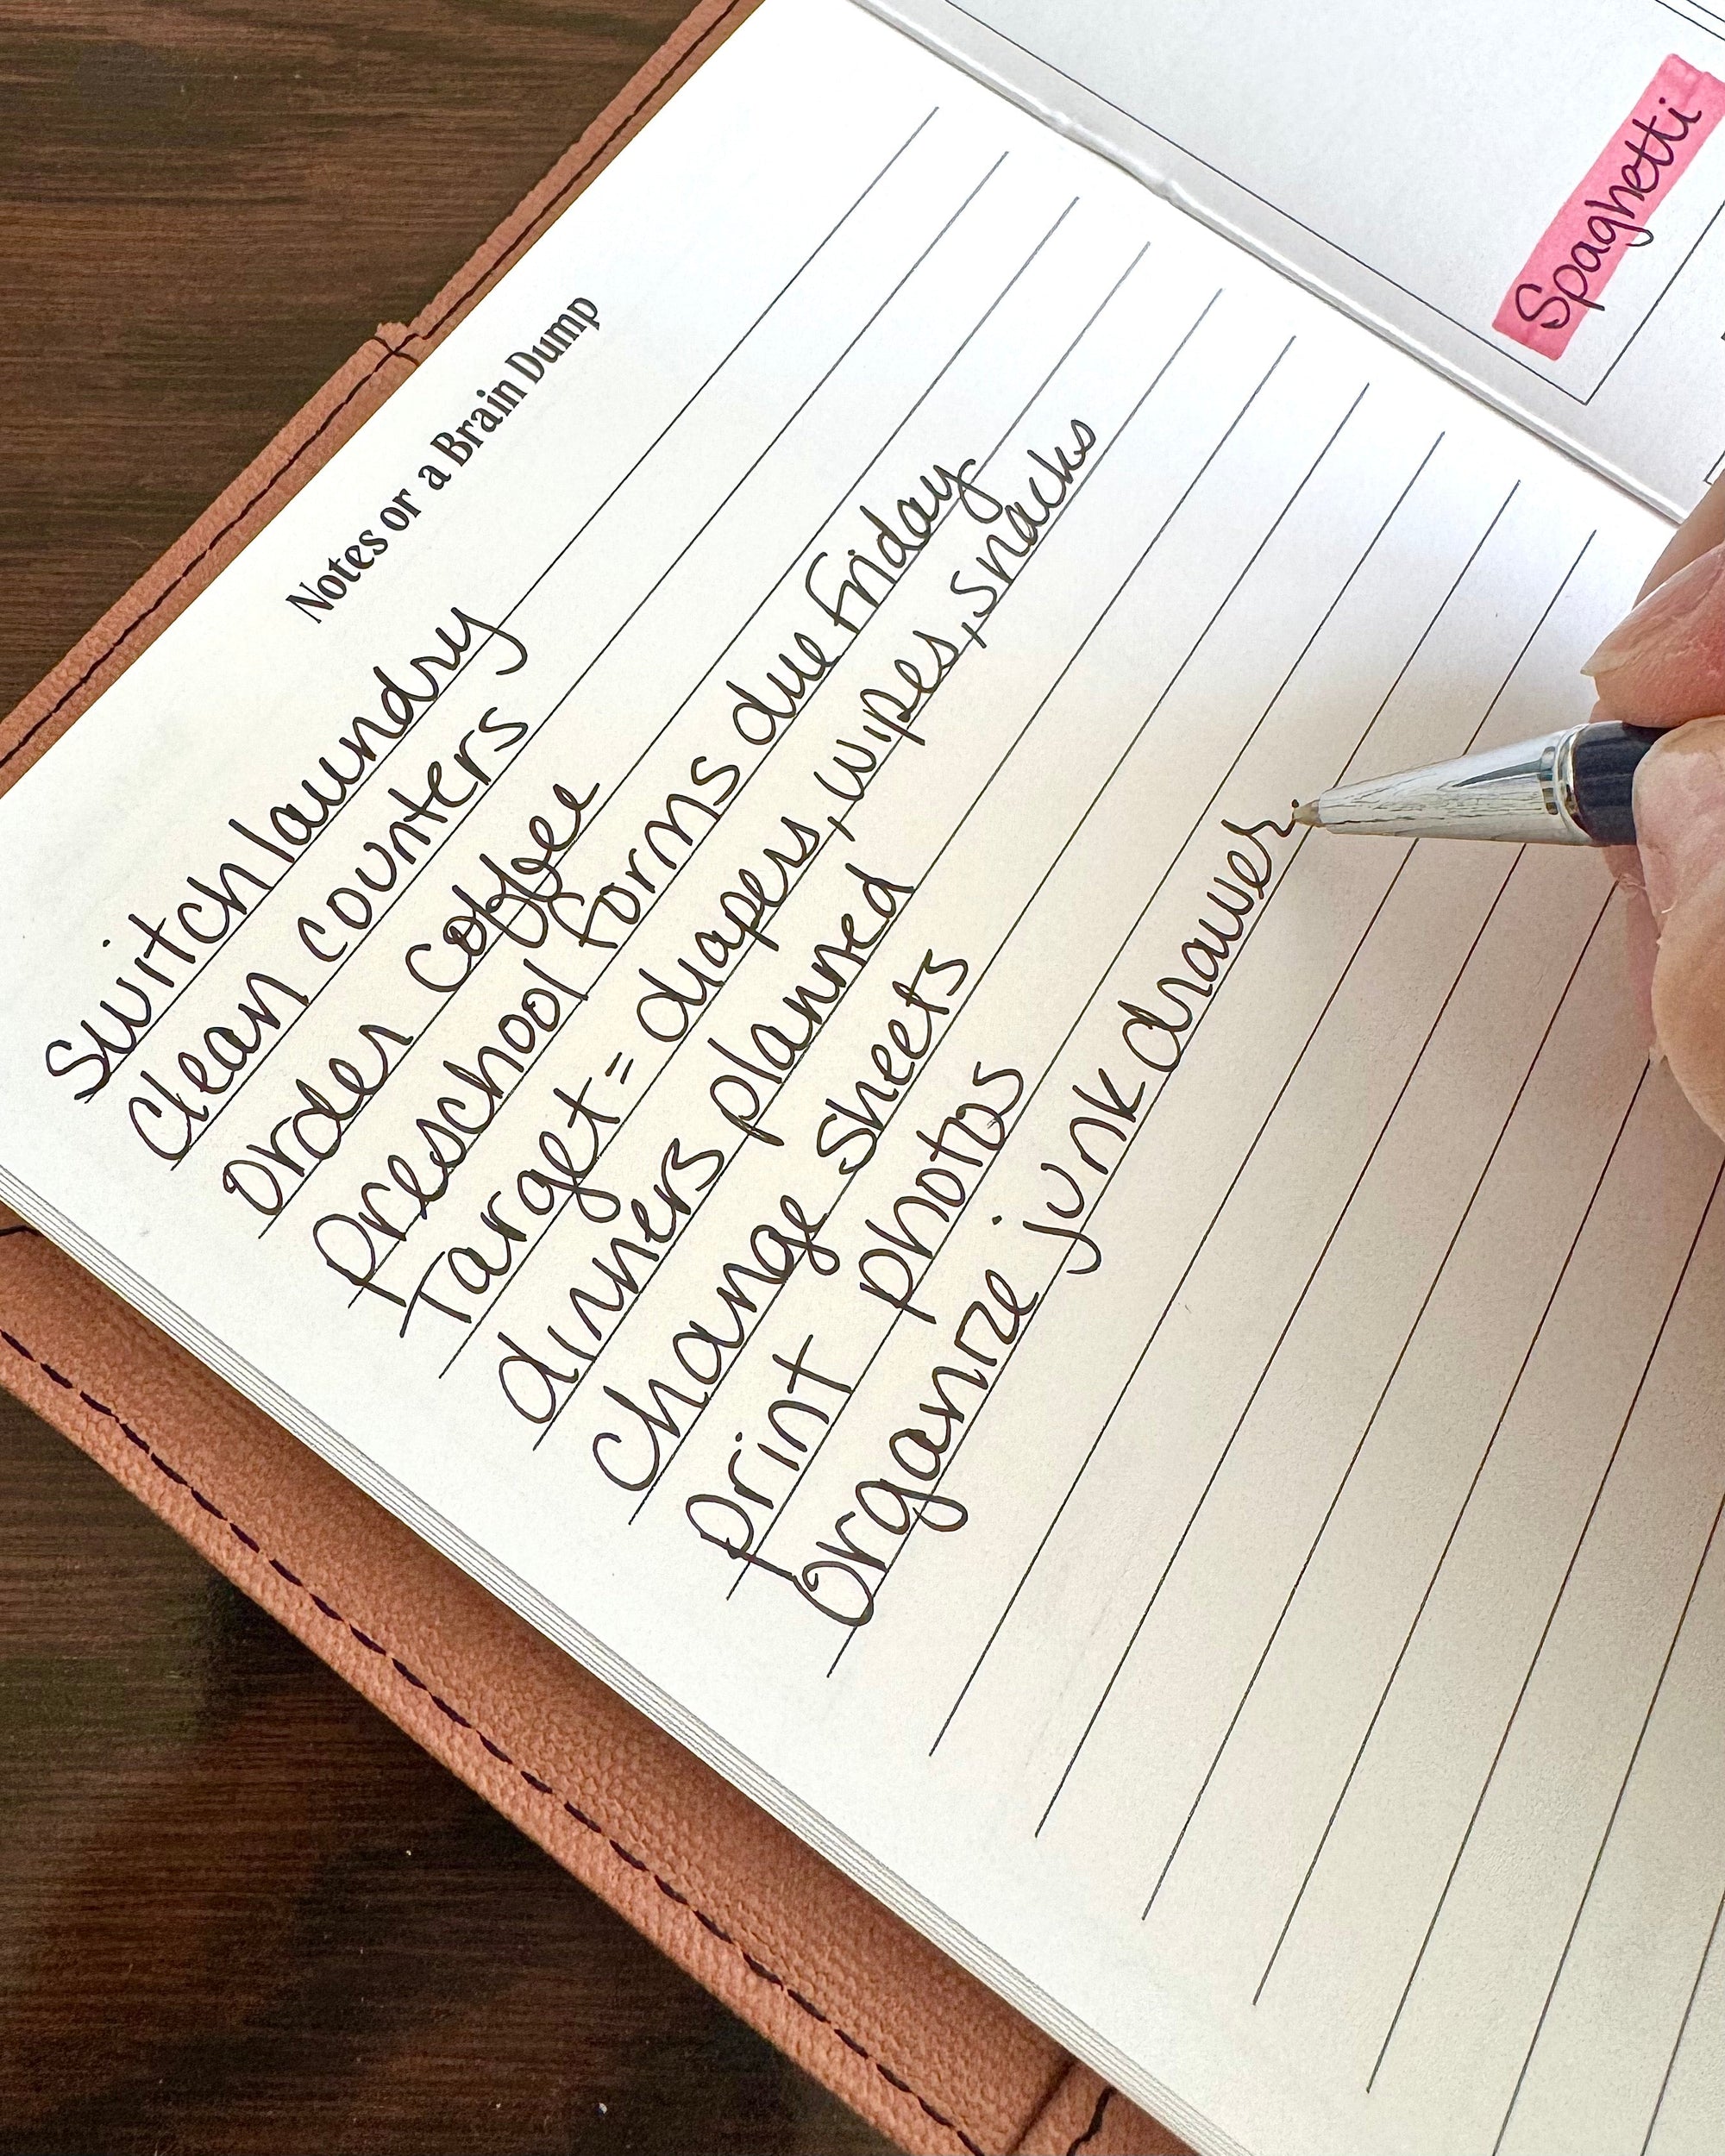 Notes or a Brain Dump
Switch laundry
Clean counters
order coffee
preschool forms due Friday
Target = diapers, wipes, snacks
dinners planned
change sheets
print photos
organize junk drawer
Spaghetti